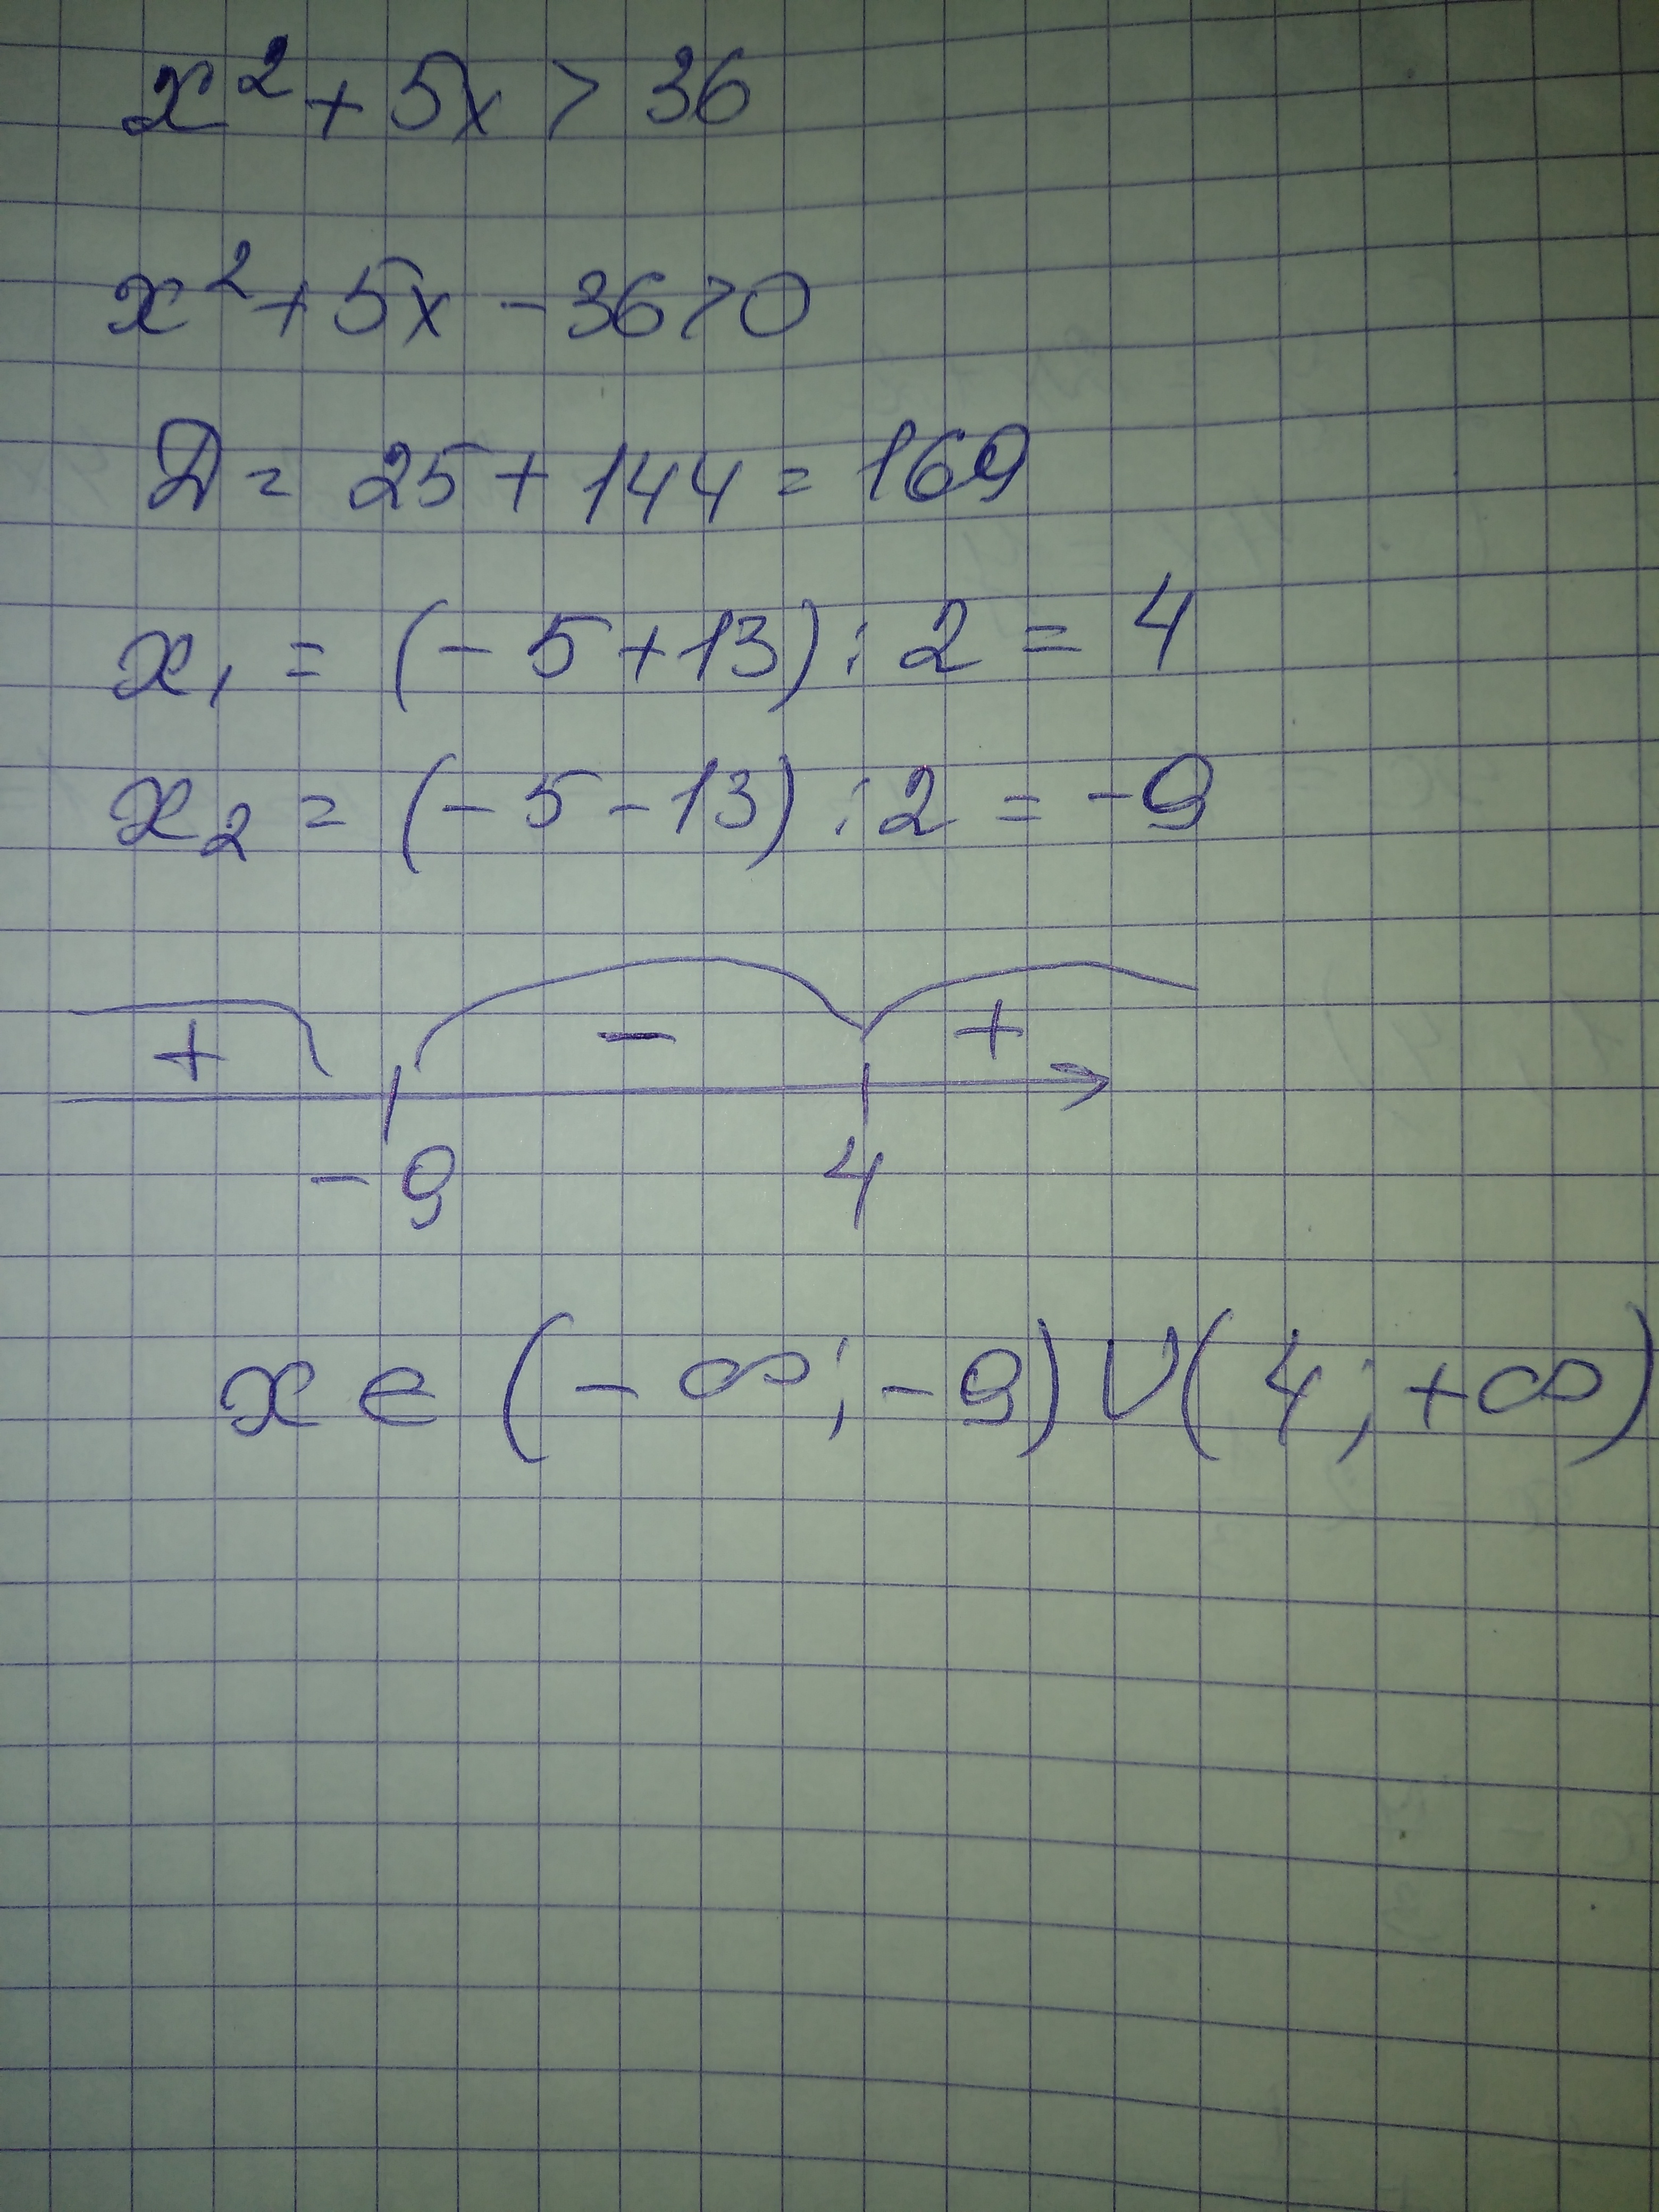 x² + 5x > 36
x² + 5x - 36 > 0
D = 25 + 144 = 169
x₁ = (- 5 + 13) : 2 = 4
x₂ = (- 5 - 13) : 2 = -9
+ - +
- 9 4
x ∈ (- ∞; - 9) ∪ (4; +∞)